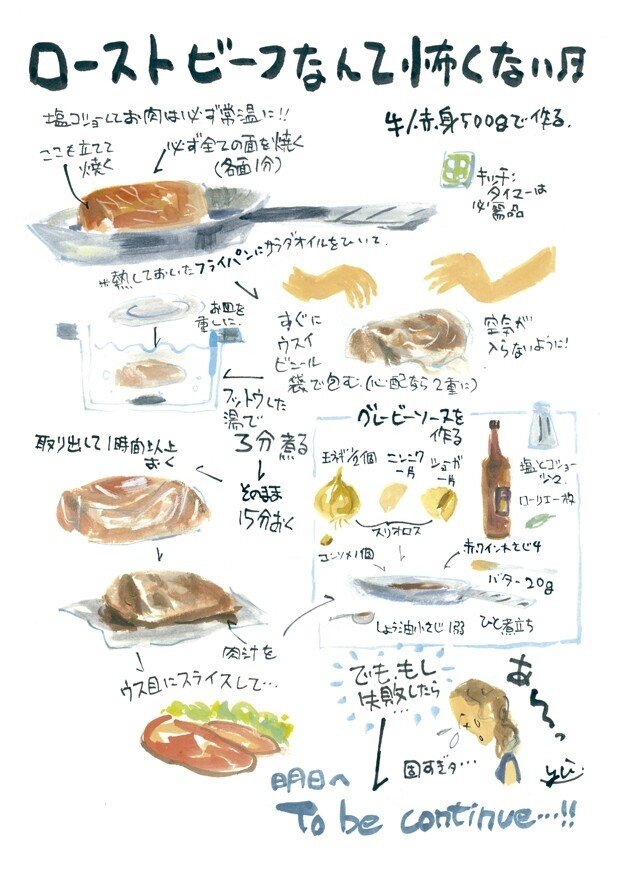 ローストビーフなんて怖くない
塩コショしてお肉は必ず常温に!!
牛赤身500gで作る。
ここも立てて
焼く
必ず全ての面を焼く
(各面1分)
キッチン
タイマーは
必需品
※熱しておいたフライパンにサラダオイルをひいて。
お皿を
重しに。
すぐに
ウスイ
ビニール
袋で包む。(心配なら2重に)
空気が
入らないように!
フットウした
湯で
3分煮る
そのまま
15分おく
取り出して1時間以上
おく
グレービーソースを
作る
玉ネギ1/2個
ニンニク
一片
ショーガ
一片
スリオロス
塩とコショー
ローリエ一枚
コンソメ1個
赤ワイン大さじ4
バター20g
しょう油小さじ1弱
ひと煮立ち
肉汁を
ウス目にスライスして…
でも、もし
失敗したら
…
あ〜っ
固すぎタ…
明日へ
To be continue…!!